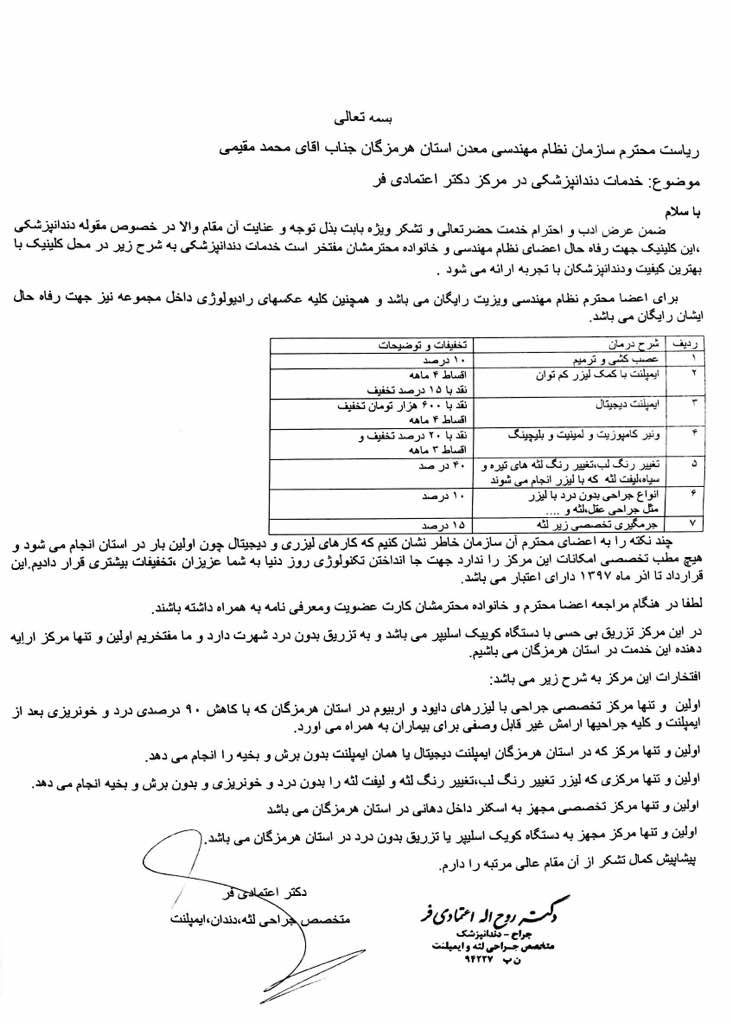 بسمه تعالی
ریاست محترم سازمان نظام مهندسی معدن استان هرمزگان جناب اقای محمد مقیمی
موضوع: خدمات دندانپزشکی در مرکز دکتر اعتمادی فر
با سلام
ضمن عرض ادب و احترام خدمت حضرتعالی و تشکر ویژه بابت بذل توجه و عنایت آن مقام والا در خصوص مقوله دندانپزشکی
،این کلینیک جهت رفاه حال اعضای نظام مهندسی و خانواده محترمشان مفتخر است خدمات دندانپزشکی به شرح زیر در محل کلینیک با
بهترین کیفیت ودندانپزشکان با تجربه ارائه می شود .
برای اعضا محترم نظام مهندسی ویزیت رایگان می باشد و همچنین کلیه عکسهای رادیولوژی داخل مجموعه نیز جهت رفاه حال
ایشان رایگان می باشد.
ردیف شرح درمان تخفیفات و توضیحات
۱ عصب کشی و ترمیم ۱۰ درصد
۲ ایمپلنت با کمک لیزر کم توان اقساط ۴ ماهه
نقد با ۱۵ درصد تخفیف
۳ ایمپلنت دیجیتال نقد با ۶۰۰ هزار تومان تخفیف
اقساط ۴ ماهه
۴ ونیر کامپوزیت و لمینیت و بلیچینگ نقد با ۲۰ درصد تخفیف و
اقساط ۳ ماهه
۵ تغییر رنگ لب،تغییر رنگ لثه های تیره و ۴۰ در صد
سیاه،لیفت لثه که با لیزر انجام می شوند
۶ انواع جراحی بدون درد با لیزر ۱۰ درصد
مثل جراحی عقل،لثه و ....
۷ جرمگیری تخصصی زیر لثه ۱۵ درصد
چند نکته را به اعضای محترم آن سازمان خاطر نشان کنیم که کارهای لیزری و دیجیتال چون اولین بار در استان انجام می شود و
هیچ مطب تخصصی امکانات این مرکز را ندارد جهت جا انداختن تکنولوژی روز دنیا به شما عزیزان ،تخفیفات بیشتری قرار دادیم.این
قرارداد تا اذر ماه ۱۳۹۷ دارای اعتبار می باشد.
لطفا در هنگام مراجعه اعضا محترم و خانواده محترمشان کارت عضویت ومعرفی نامه به همراه داشته باشند.
در این مرکز تزریق بی حسی با دستگاه کوییک اسلیپر می باشد و به تزریق بدون درد شهرت دارد و ما مفتخریم اولین و تنها مرکز ارایه
دهنده این خدمت در استان هرمزگان می باشیم.
افتخارات این مرکز به شرح زیر می باشد:
اولین و تنها مرکز تخصصی جراحی با لیزرهای دایود و اربیوم در استان هرمزگان که با کاهش ۹۰ درصدی درد و خونریزی بعد از
ایمپلنت و کلیه جراحیها ارامش غیر قابل وصفی برای بیماران به همراه می اورد.
اولین و تنها مرکز که در استان هرمزگان ایمپلنت دیجیتال یا همان ایمپلنت بدون برش و بخیه را انجام می دهد.
اولین و تنها مرکزی که لیزر تغییر رنگ لب،تغییر رنگ لثه و لیفت لثه را بدون درد و خونریزی و بدون برش و بخیه انجام می دهد.
اولین و تنها مرکز تخصصی مجهز به اسکنر داخل دهانی در استان هرمزگان می باشد
اولین و تنها مرکز مجهز به دستگاه کویک اسلیپر یا تزریق بدون درد در استان هرمزگان می باشد.
پیشاپیش کمال تشکر از آن مقام عالی مرتبه را دارم.
دکتر اعتمادی فر
متخصص جراحی لثه،دندان،ایمپلنت
دکتر روح اله اعتمادی فر
جراح - دندانپزشک
متخصص جراحی لثه و ایمپلنت
ن پ ۹۴۲۲۷